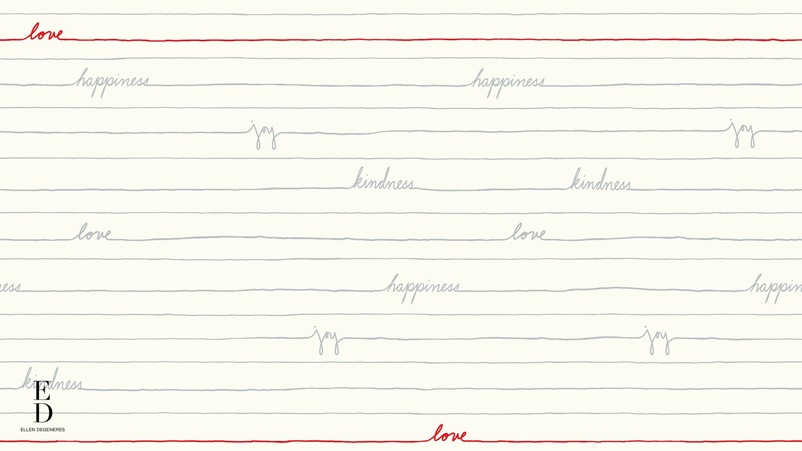 love
happiness happiness
joy joy
kindness kindness
love love
ess happiness happin
joy joy
kindness
E
D
ELLEN DEGENERES
love